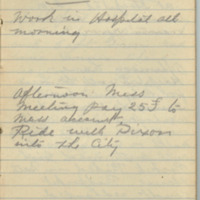 Work in Hospital all
morning
afternoon Mess
Meeting pay 25 F to
Mess account
Ride with Dixon
into the City